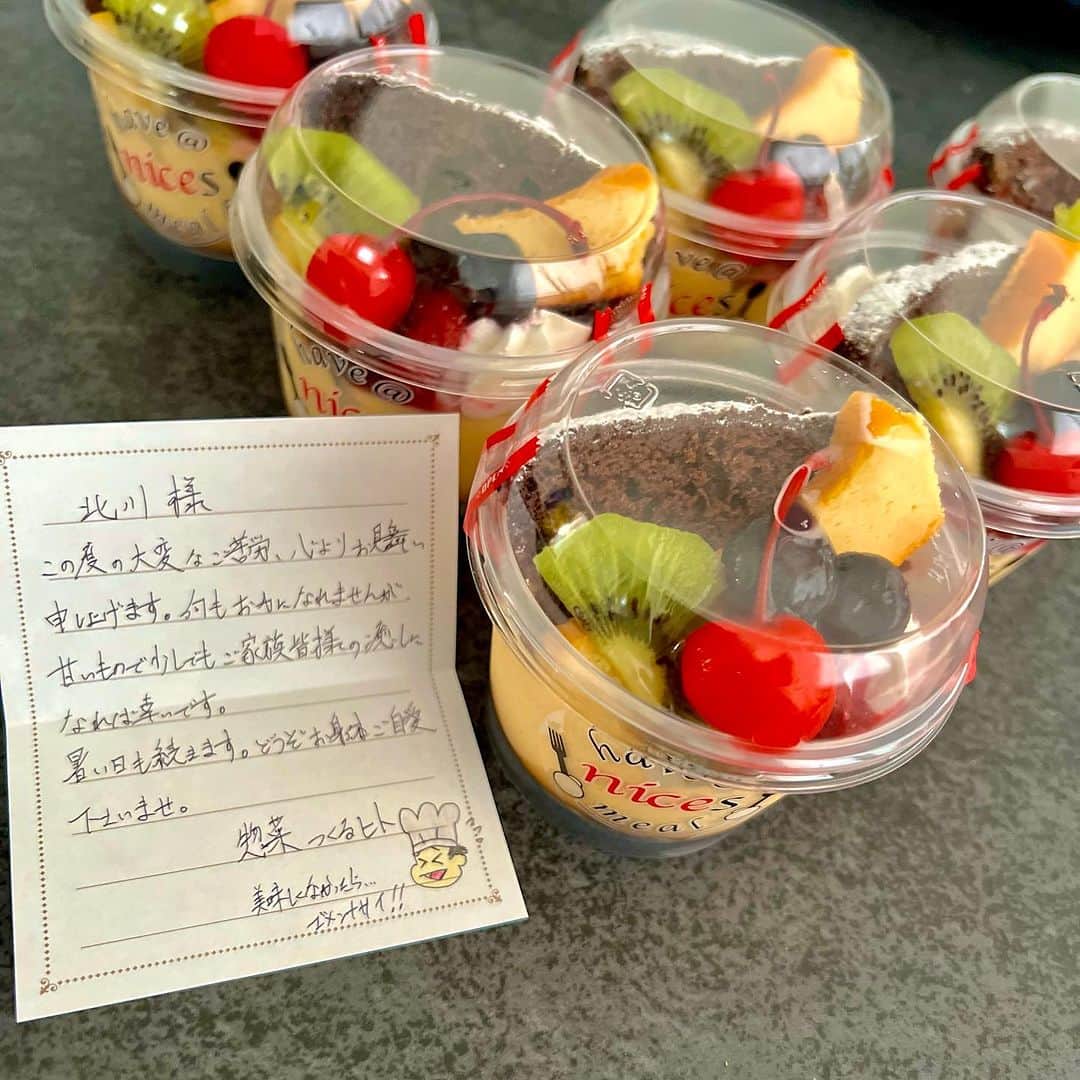 北川様
この度の大変なご苦労、心よりお見舞い
申し上げます。何もお力になれませんが
甘いもので少しでもご家族皆様の癒しに
なれば幸いです。
暑い日も続きます。どうぞお身体ご自愛
下さいませ。
惣菜 つくるヒト
美味しくなかったら...
ゴメンナサイ!!
have @
nices
meal
have @
ni
have @
nices
have
nices
meal